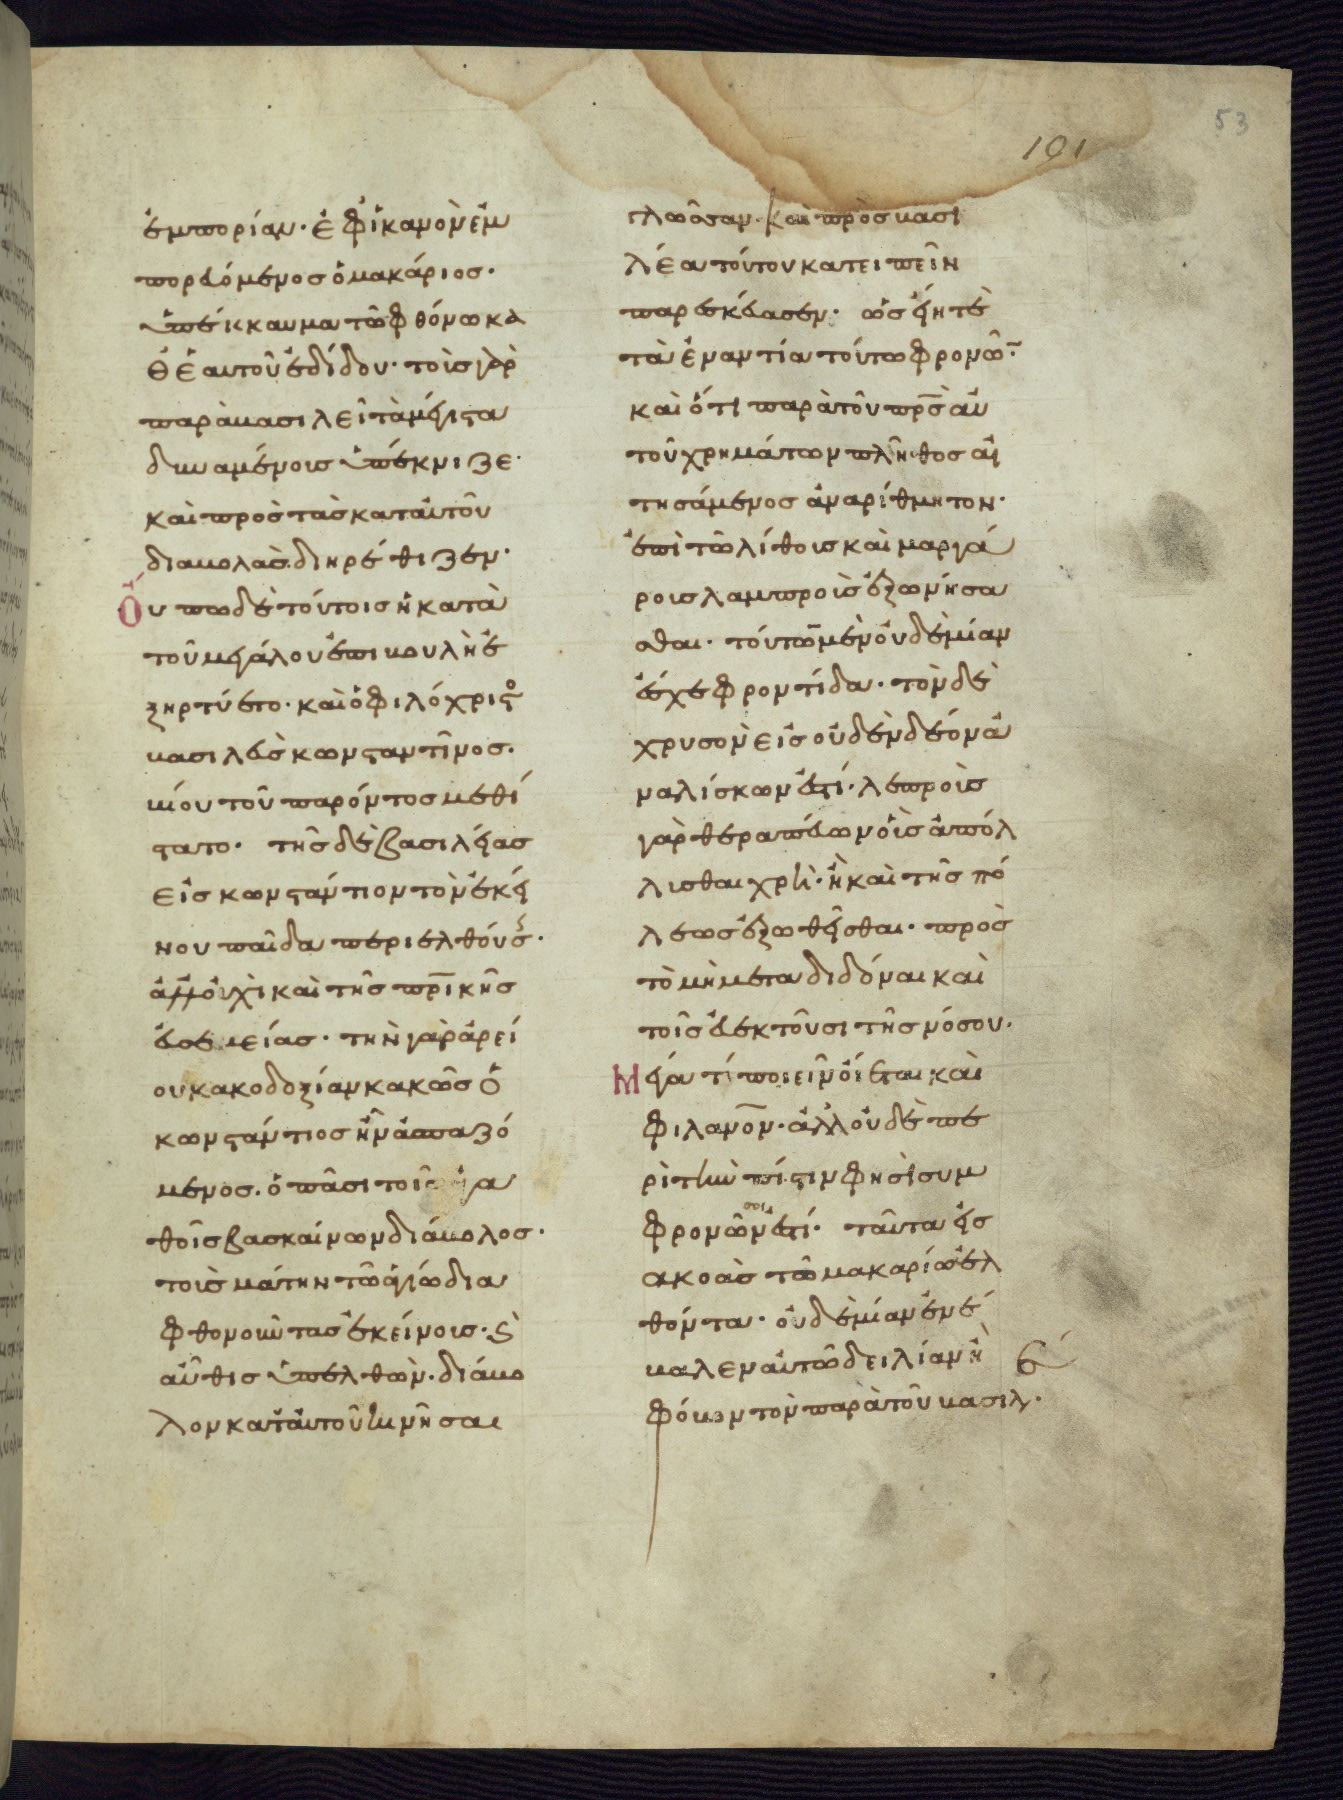 53
191
ἐμπορίαν· ἐφ' ἱκανὸν ἐμ
πορευόμενος ὁ μακάριος·
ὑπέκκαυμα τῶ φθόνω κα
θ' ἑαυτοῦ ἐδίδου· τοῖς γὰρ
παρὰ βασιλεῖ τὰ μέγιστα
δυναμένοις ὑπέκνιζε·
καὶ πρὸς τὰς κατ' αὐτοῦ
διαβολὰς διηρέθιζεν·
Οὔπω δὲ τούτοις ἡ κατὰ
τοῦ μεγάλου ἐπιβουλὴ ἐ
ξηρτύετο· καὶ ὁ φιλόχριστο
βασιλεὺς κωνσταντῖνος·
βίου τοῦ παρόντος μεθί
στατο· τῆς δὲ βασιλείας
εἰς κωνστάντιον τὸν ἐκεί
νου παῖδα περιελθούσ·
ἀλλ' οὐχὶ καὶ τῆς πρικῆς
εὐσεβείας· τὴν γὰρ ἀρεί
ου κακοδοξίαν κακῶς ὁ
κωνστάντιος ἦν ἀσπαζό
μενος· ὁ πᾶσι τοῖς ἀγα
θοῖς βασκαίνων διάβολος·
τοῖς μάτην τῶ ἁγίω δια
φθονοῦντας ἐκείνοις· κ
αὖθις ὑπελθὼν· διάβο
λον κατ' αὐτοῦ κινῆσαι
γλῶσσαν· καὶ πρὸς βασι
λέα τούτου κατειπεῖν
παρεσκεύασεν· ὡς εἴη τε
τὰ ἐναντία τούτω φρονῶν·
καὶ ὅτι παρὰ τοῦ πρς αὐ
τοῦ χρημάτων πλῆθος αἰ
τησάμενος ἀναρίθμητον·
ἐπὶ τῶ λίθοις καὶ μαργά
ροις λαμπροῖς ἐξωνήσα
σθαι· τούτων μὲν οὐδεμίαν
ἔχε φροντίδα· τὸν δὲ
χρυσὸν εἰς οὐδὲν δέον ἀ
ναλίσκων ἐστί· λεπροὺς
γὰρ θεραπεύων οἷς ἀπόλ
λισθαι χρὴ· ἢ καὶ τῆς πό
λεως ἐξωθεῖσθαι· πρὸς
τὸ μὴ μεταδιδόναι καὶ
τοῖς ἀεκτοῦσι τῆς νόσου·
Μέγα τί ποιεῖν οἴεται καὶ
φιλανον· ἀλλ' οὐδὲ πε
ρὶ τὴν πίστιν φησὶ συμ
φρονῶν σοι ἐστί· ταῦτα εἰς
ἀκοὰς τῶ μακαρίω ἐλ
θόντα· οὐδεμίαν ἐνέ
βαλεν αὐτῶ δειλίαν ἢ
φόβον τὸν παρὰ τοῦ βασιλ·